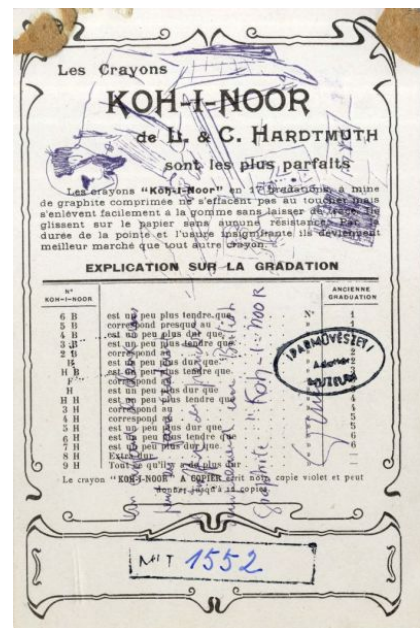 Les Crayons
KOH-I-NOOR
de L. & C. HARDTMUTH
sont les plus parfaits
Les crayons "Koh-I-Noor" en 17 gradations, à mine
de graphite comprimée ne s'effacent pas au toucher mais
s'enlèvent facilement à la gomme sans laisser de trace. Ils
glissent sur le papier sans aucune résistance. Par la
durée de la pointe et l'usure insignifiante ils deviennent
meilleur marché que tout autre crayon.
EXPLICATION SUR LA GRADATION
N° KOH-I-NOOR
ANCIENNE GRADUATION
6 B est un peu plus tendre que N° 1
5 B correspond presque au 1
4 B est un peu plus dur que 1
3 B est un peu plus tendre que 2
2 B correspond au 2
B est un peu plus dur que 2
H B est un peu plus tendre que
F correspond au
H est un peu plus dur que
H H est un peu plus tendre que
3 H correspond au 4
4 H correspond au
5 H est un peu plus dur que
6 H est un peu plus tendre que
7 H est un peu plus dur que
8 H Extra dur
9 H Tout ce qu'il y a de plus dur
Le crayon "KOH-I-NOOR" A COPIER écrit noir, copie violet et peut
donner jusqu'à 12 copies
IPARMŰVÉSZETI
Adattár
MÚZEUM
Graphite "Koh-I-noor
British
MLT 1552